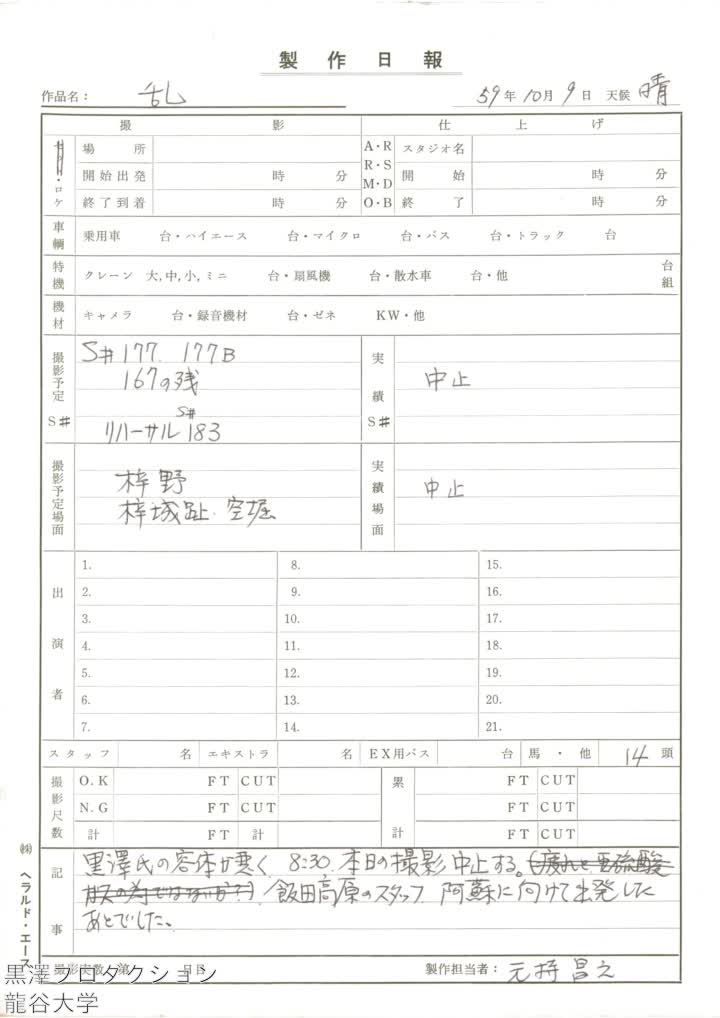 製作日報
作品名： 乱 59年10月9日 天候 晴
撮影 仕上げ
セット・ロケ 場所 A・R スタジオ名
開始出発 時 分 R・S 開始 時 分
M・D
終了到着 時 分 O・B 終了 時 分
車輌 乗用車 台・ハイエース 台・マイクロ 台・バス 台・トラック 台
特機 クレーン 大,中,小,ミニ 台・扇風機 台・散水車 台・他 台組
機材 キャメラ 台・録音機材 台・ゼネ KW・他
撮影予定S# S#177. 177B 実績S# 中止
167の残
S#
リハーサル 183
撮影予定場面 梓野 実績場面 中止
梓城趾・空堀
出演者 1. 8. 15.
2. 9. 16.
3. 10. 17.
4. 11. 18.
5. 12. 19.
6. 13. 20.
7. 14. 21.
スタッフ 名 エキストラ 名 EX用バス 台 馬・他 14頭
撮影尺数 O.K FT CUT 累計 FT CUT
N.G FT CUT FT CUT
計 FT 計 FT CUT
記事 黒澤氏の容体が悪く、8:30、本日の撮影中止する。(疲れと亜硫酸
ガスの為ではないか？) 飯田高原のスタッフ、阿蘇に向けて出発した
あとでした。
撮影実数 第 日目 製作担当者： 元持昌之
㈱ヘラルド・エース
黒澤プロダクション
龍谷大学